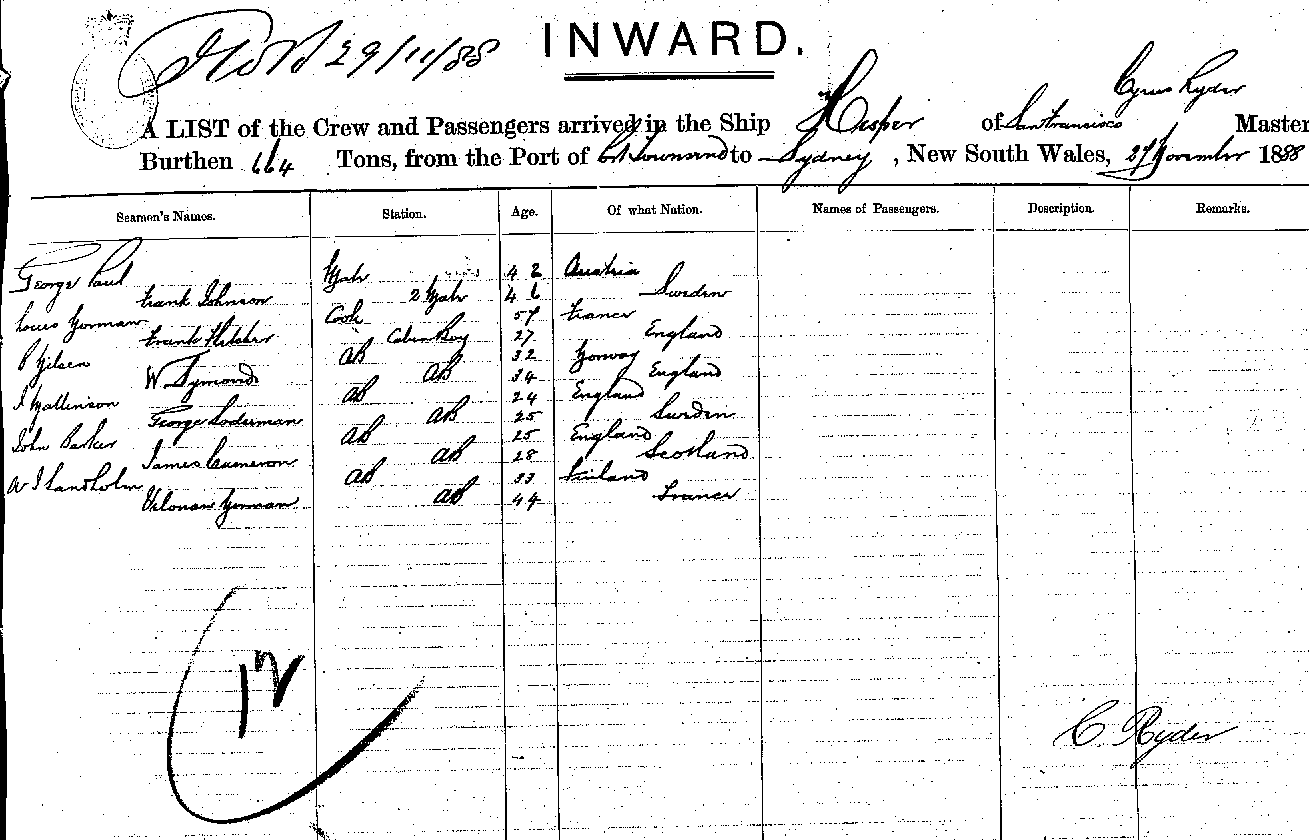 29/11/88 INWARD.
Cyrus Ryder
A LIST of the Crew and Passengers arrived in the Ship Hesper of San Francisco Master
Burthen 664 Tons, from the Port of Pt Townsend to Sydney, New South Wales, November 1888
Seamen's Names. Station. Age. Of what Nation. Names of Passengers. Description. Remarks.
George Paul Mate 42 Austria
Frank Johnson 2 Mate 46 Sweden
Louis Cook 57 France
Frank Cabin Boy 27 England
P Nilsen AB 32 Norway
W Symonds AB 34 England
J Mallinson AB 24 England
George Soderman AB 25 Sweden
John Barker AB 25 England
James Cameron AB 28 Scotland
AB 33 Finland
AB 44 France
12
C. Ryder